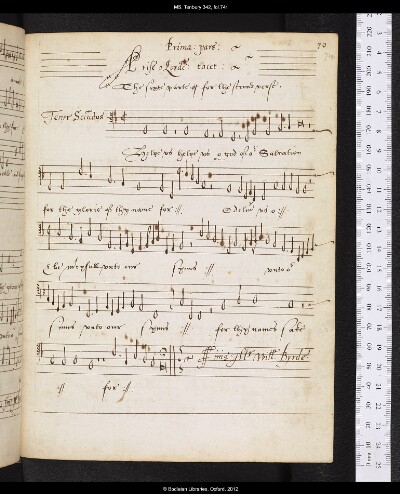 MS. Tenbury 342, fol.74r
Prima: pars:
70
Arise o Lorde: tacet:
The first parte of for the strong verse.
Tenor Secūdus
Helpe us helpe us o god of oʳ Salvation
for the glorie of thy name for :||: Deliu' us o :||:
& be m'cyfull unto our synns :||: unto oʳ
synns unto our synns :||: for thy names sake
:||: for :||:
Finis Mʳ Willm̄ Byrde
© Bodleian Libraries, Oxford, 2012